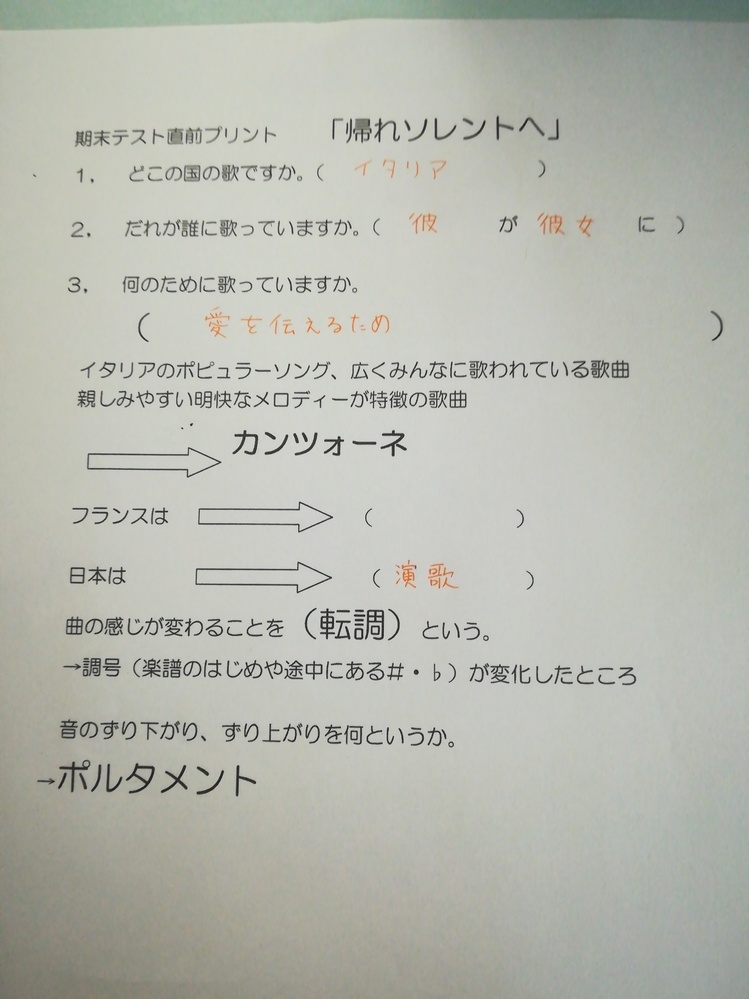 期末テスト直前プリント 「帰れソレントへ」
1． どこの国の歌ですか。( イタリア )
2． だれが誰に歌っていますか。( 彼 が 彼女 に )
3． 何のために歌っていますか。
( 愛を伝えるため )
イタリアのポピュラーソング、広くみんなに歌われている歌曲
親しみやすい明快なメロディーが特徴の歌曲
カンツォーネ
フランスは ( )
日本は ( 演歌 )
曲の感じが変わることを（転調）という。
→調号（楽譜のはじめや途中にある＃・♭）が変化したところ
音のずり下がり、ずり上がりを何というか。
→ポルタメント